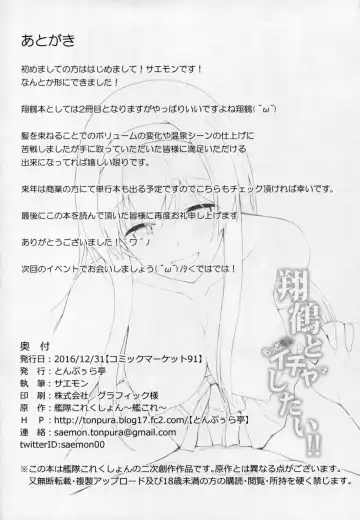 あとがき
初めましての方ははじめまして！サエモンです！
なんとか形にできました！
翔鶴本としては2冊目となりますがやっぱりいいですよね翔鶴(˘ω˘)
髪を束ねることでのボリュームの変化や温泉シーンの仕上げに
苦戦しましたが手に取っていただいた皆様に満足いただける
出来になってれば嬉しい限りです。
来年は商業の方にて単行本も出る予定ですのでこちらもチェック頂ければ幸いです。
最後にこの本を読んで頂いた皆様に再度お礼申し上げます
ありがとうございました！
次回のイベントでお会いしましょう(˘ω˘)ﾉｼではではﾉｼ
翔鶴と
イチャイチャしたい!!
奥 付
発行日：2016/12/31【コミックマーケット91】
発 行：とんぷぅら亭
執 筆：サエモン
印 刷：株式会社 グラフィック様
原 作：艦隊これくしょん～艦これ～
H P：http://tonpura.blog17.fc2.com/【とんぷぅら亭】
連 絡：saemon.tonpura@gmail.com
twitterID：saemon00
※この本は艦隊これくしょんの二次創作作品です。原作とは異なる点がございます。
又無断転載・複製アップロード及び18歳未満の方の購読・閲覧・所持を硬く禁じます。